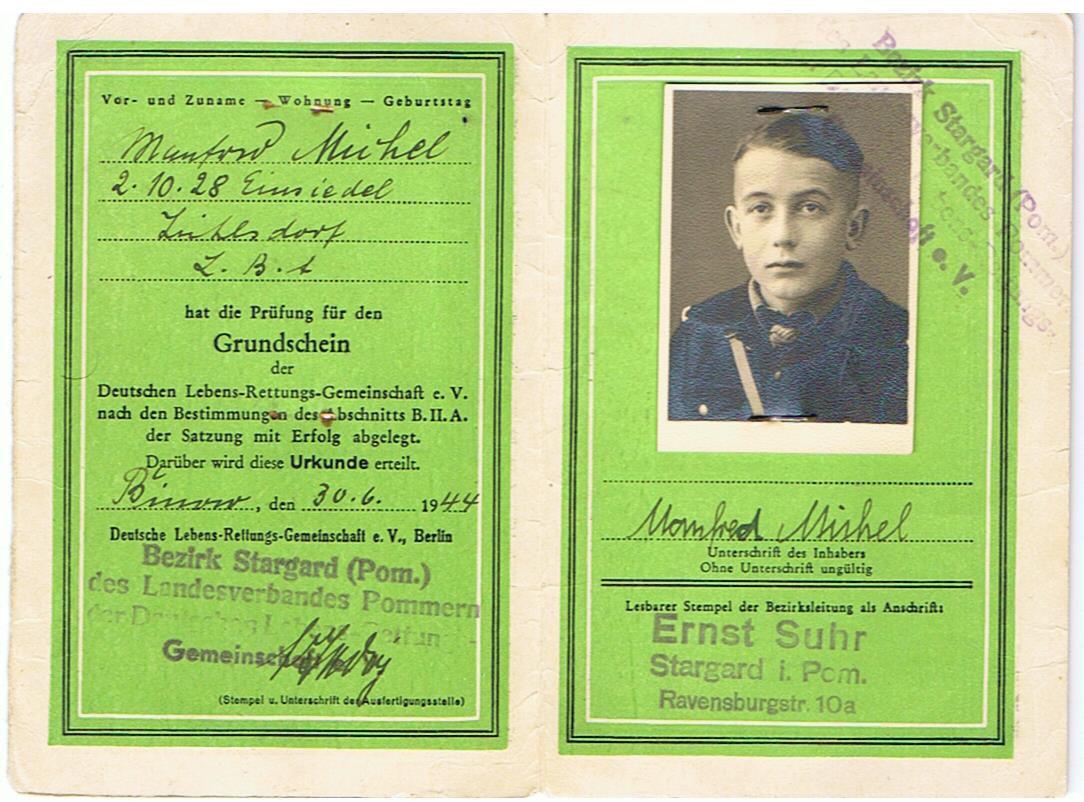 Vor- und Zuname — Wohnung — Geburtstag
Manfred Michel
2.10.28 Einsiedel
Zühlsdorf
Z. B. t
hat die Prüfung für den
Grundschein
der
Deutschen Lebens-Rettungs-Gemeinschaft e. V.
nach den Bestimmungen des Abschnitts B. II. A.
der Satzung mit Erfolg abgelegt.
Darüber wird diese Urkunde erteilt.
Binow, den 30.6. 1944
Deutsche Lebens-Rettungs-Gemeinschaft e. V., Berlin
Bezirk Stargard (Pom.)
des Landesverbandes Pommern
der Deutschen Lebens-Rettungs-
Gemeinschaft
(Stempel u. Unterschrift der Ausfertigungsstelle)
Bezirk Stargard (Pom.)
des Landesverbandes Pommern
e. V.
Manfred Michel
Unterschrift des Inhabers
Ohne Unterschrift ungültig
Lesbarer Stempel der Bezirksleitung als Anschrift:
Ernst Suhr
Stargard i. Pom.
Ravensburgstr. 10a